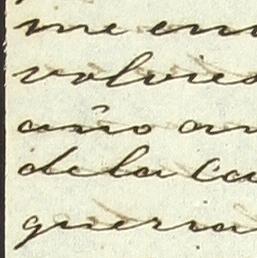 me en
volvies
año an
de la Ca
guerra